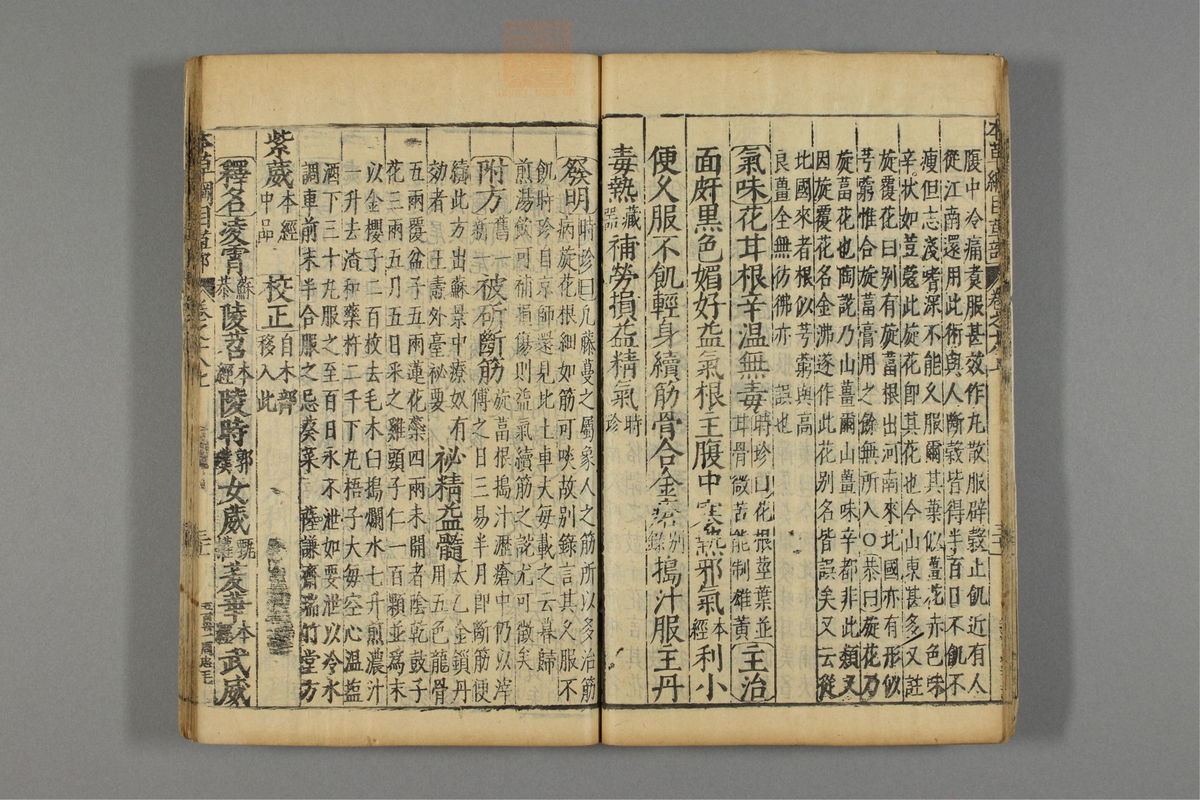 本草綱目草部 卷之十八上
腹中冷痛煑服甚效作丸散服辟穀止飢近有人
從江南還用此術與人斷穀皆得半百日不飢不
瘦但志淺嗜深不能久服爾其葉似薑花赤色味
辛狀如荳蔻此旋花即其花也今山東甚多又註
旋覆花曰別有旋葍根出河南來北國亦有形似
芎藭惟合旋葍膏用之餘無所入〇恭曰旋花乃
旋葍花也陶說乃山薑爾山薑味辛都非此類又
因旋覆花名金沸遂作此花別名皆誤矣又云從
北國來者根似芎藭與高
良薑全無彷彿亦誤也
氣味花甘根辛溫無毒時珍曰花根莖葉並甘滑微苦能制雄黃主治
面皯黑色媚好益氣根主腹中寒熱邪氣本經利小
便久服不飢輕身續筋骨合金瘡別錄搗汁服主丹
毒熱藏器補勞損益精氣時珍
發明時珍曰凡藤蔓之屬象人之筋所以多治筋
病旋花根細如筋可啖故別錄言其久服不
飢時珍自京師還見北土車夫每載之云暮歸
煎湯飲可補損傷則益氣續筋之說尤可徵矣
附方舊一新一被斫斷筋旋葍根搗汁瀝瘡中仍以滓傅之日三易半月即斷筋便
續此方出蘇景中療奴有效者王燾外臺祕要祕精益髓太乙金鎖丹用五色龍骨
五兩覆盆子五兩蓮花蘂四兩未開者陰乾鼓子
花三兩五月五日采之雞頭子仁一百顆並爲末
以金櫻子二百枚去毛木臼搗爛水七升煎濃汁
一升去渣和藥杵二千下丸梧子大每空心溫鹽
酒下三十丸服之至百日永不泄如要泄以冷水
調車前末半合服之忌葵菜 薩謙齋瑞竹堂方
紫葳本經中品 校正自木部移入此
釋名凌霄蘇恭陵苕本經陵時郭璞女葳甄權茇華本經武威
本草綱目草部 卷之十八上